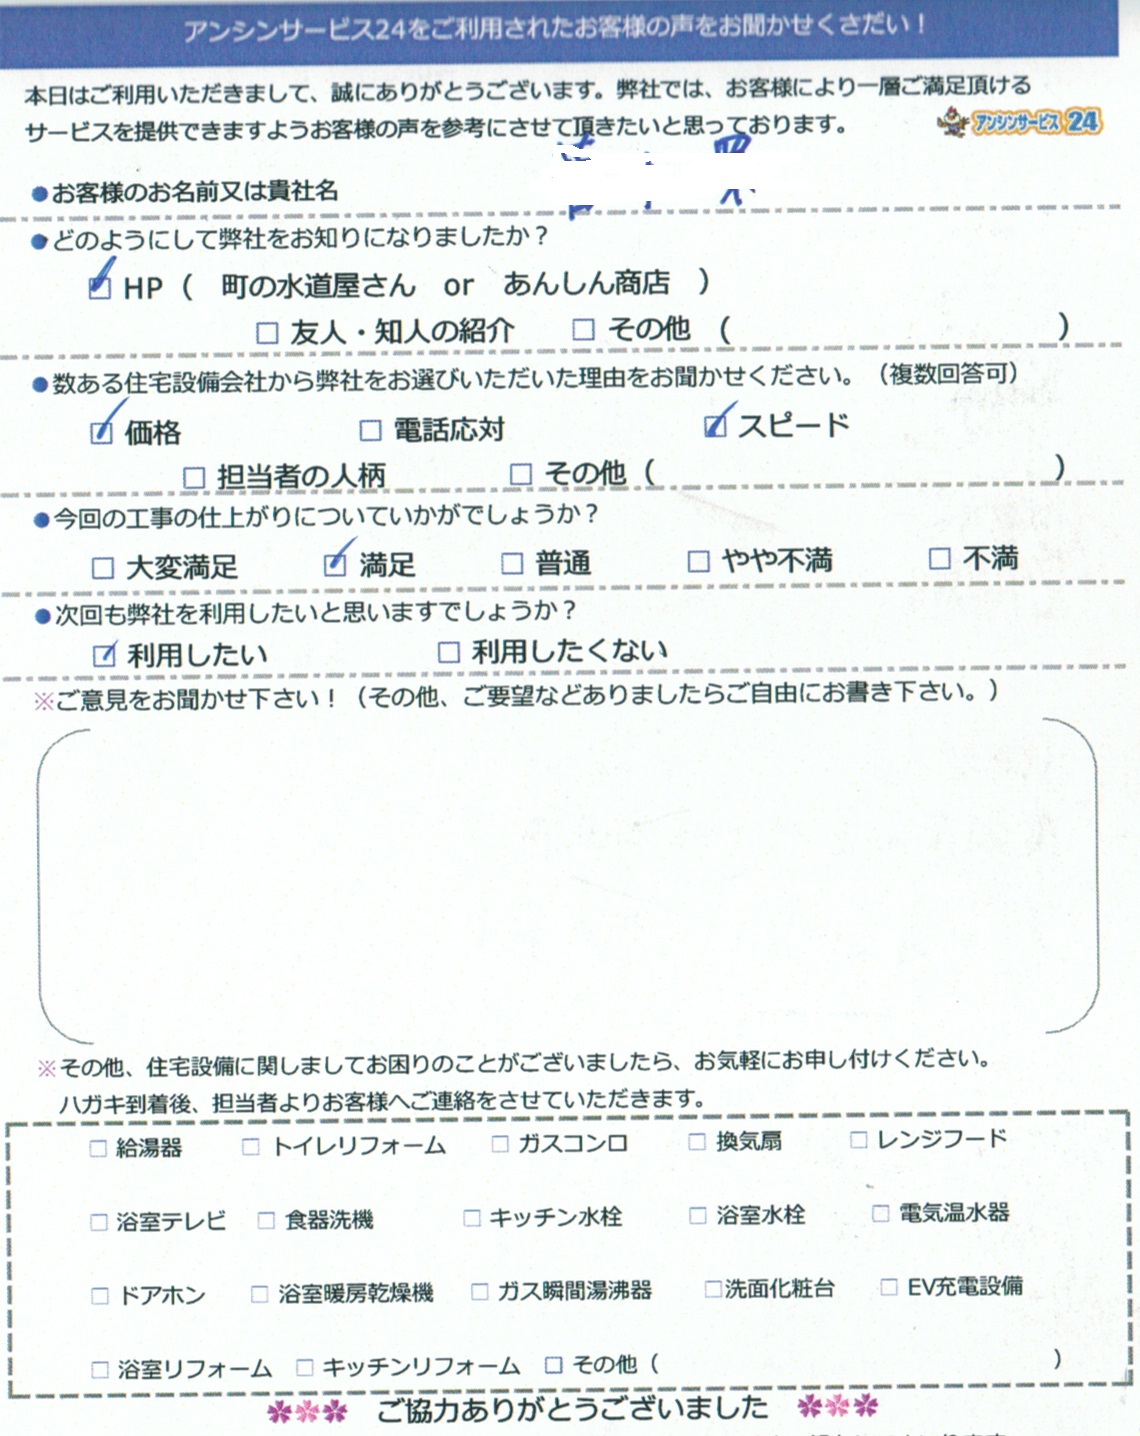 アンシンサービス24をご利用されたお客様の声をお聞かせくさだい！
本日はご利用いただきまして、誠にありがとうございます。弊社では、お客様により一層ご満足頂ける
サービスを提供できますようお客様の声を参考にさせて頂きたいと思っております。
アンシンサービス24
●お客様のお名前又は貴社名
●どのようにして弊社をお知りになりましたか？
☑ HP（　町の水道屋さん　or　あんしん商店　）
□ 友人・知人の紹介　□ その他　(　)
●数ある住宅設備会社から弊社をお選びいただいた理由をお聞かせください。（複数回答可）
☑ 価格　□ 電話応対　☑ スピード
□ 担当者の人柄　□ その他（　)
●今回の工事の仕上がりについていかがでしょうか？
□ 大変満足　☑ 満足　□ 普通　□ やや不満　□ 不満
●次回も弊社を利用したいと思いますでしょうか？
☑ 利用したい　□ 利用したくない
※ご意見をお聞かせ下さい！（その他、ご要望などありましたらご自由にお書き下さい。）
※その他、住宅設備に関しましてお困りのことがございましたら、お気軽にお申し付けください。
ハガキ到着後、担当者よりお客様へご連絡をさせていただきます。
□ 給湯器　□ トイレリフォーム　□ ガスコンロ　□ 換気扇　□ レンジフード
□ 浴室テレビ　□ 食器洗機　□ キッチン水栓　□ 浴室水栓　□ 電気温水器
□ ドアホン　□ 浴室暖房乾燥機　□ ガス瞬間湯沸器　□洗面化粧台　□ EV充電設備
□ 浴室リフォーム　□ キッチンリフォーム　□ その他（　）
ご協力ありがとうございました